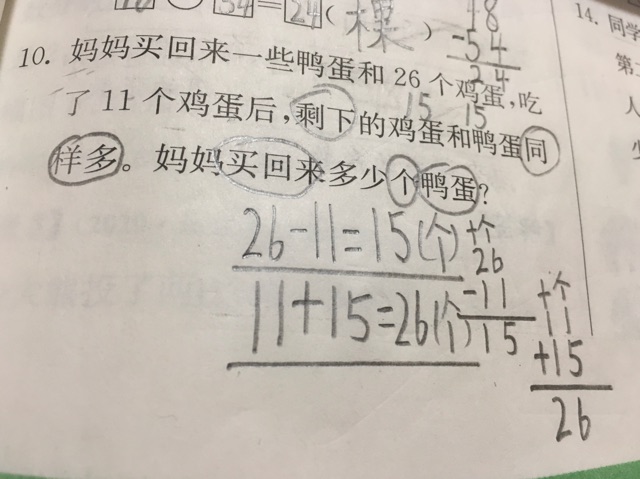 54=24(棵)
48
-54
24
14. 同学
第
人
少
10. 妈妈买回来一些鸭蛋和 26 个鸡蛋,吃
了 11 个鸡蛋后,剩下的鸡蛋和鸭蛋同
15 15
样多。妈妈买回来多少个鸭蛋?
26-11=15(个)
十个
26
-11
15
11+15=26(个)
十个
11
+15
26